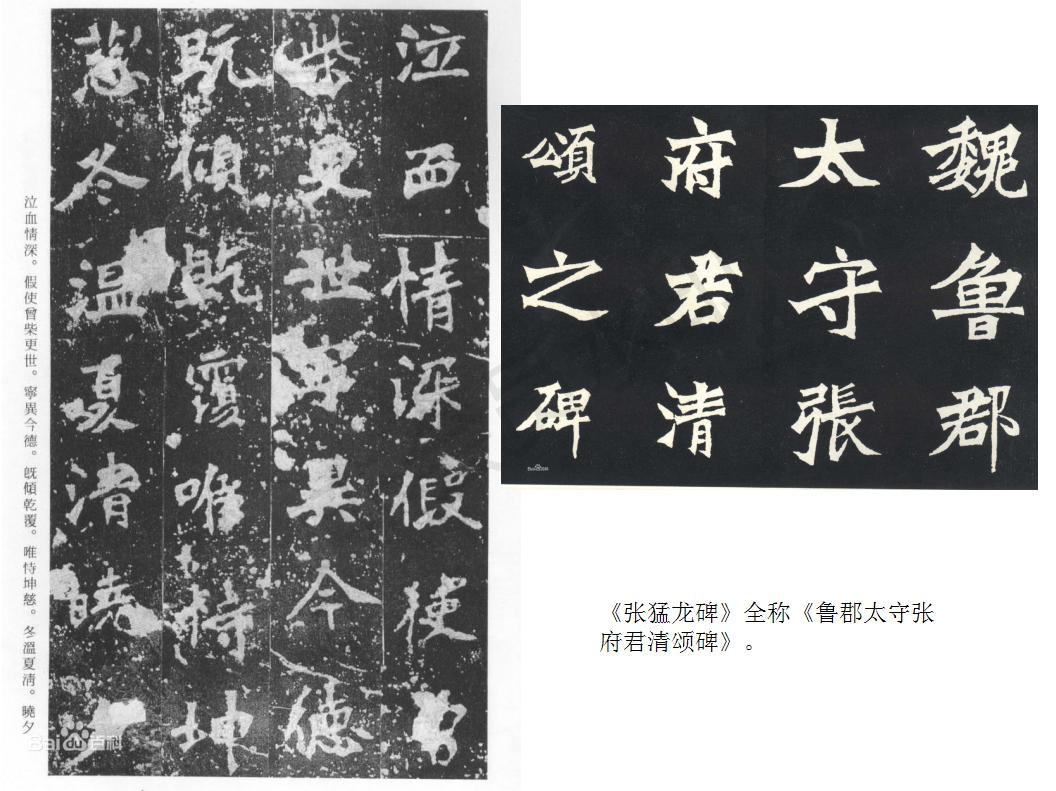 泣血情深假使曾
柴更世寧異今德
既傾乾覆唯恃坤
慈冬温夏清曉夕
泣血情深。假使曾柴更世。寧異今德。旣傾乾覆。唯恃坤慈。冬溫夏清。曉夕
Baidu百科
魏魯郡
太守張
府君清
頌之碑
Baidu百科
《张猛龙碑》全称《鲁郡太守张
府君清颂碑》。